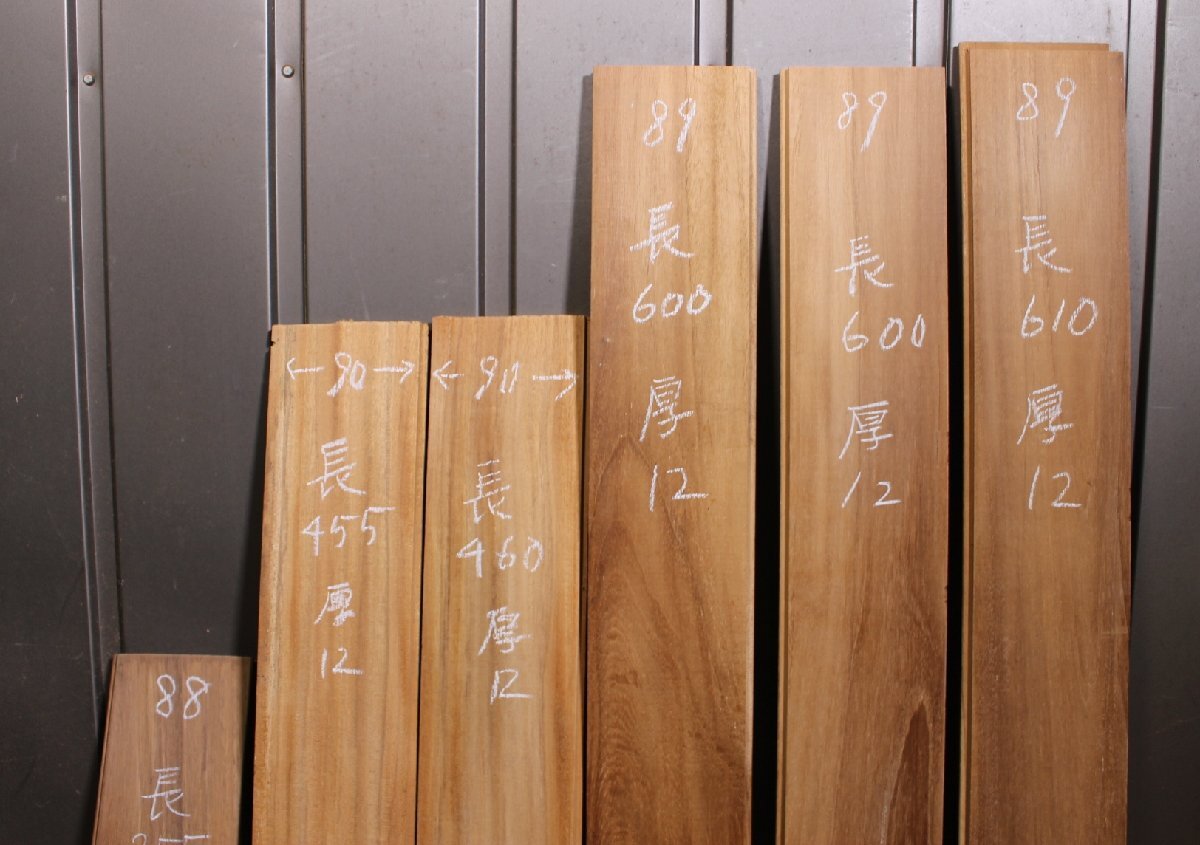 88
長
←90→
長
455
厚
12
←90→
長
460
厚
12
89
長
600
厚
12
89
長
600
厚
12
89
長
610
厚
12